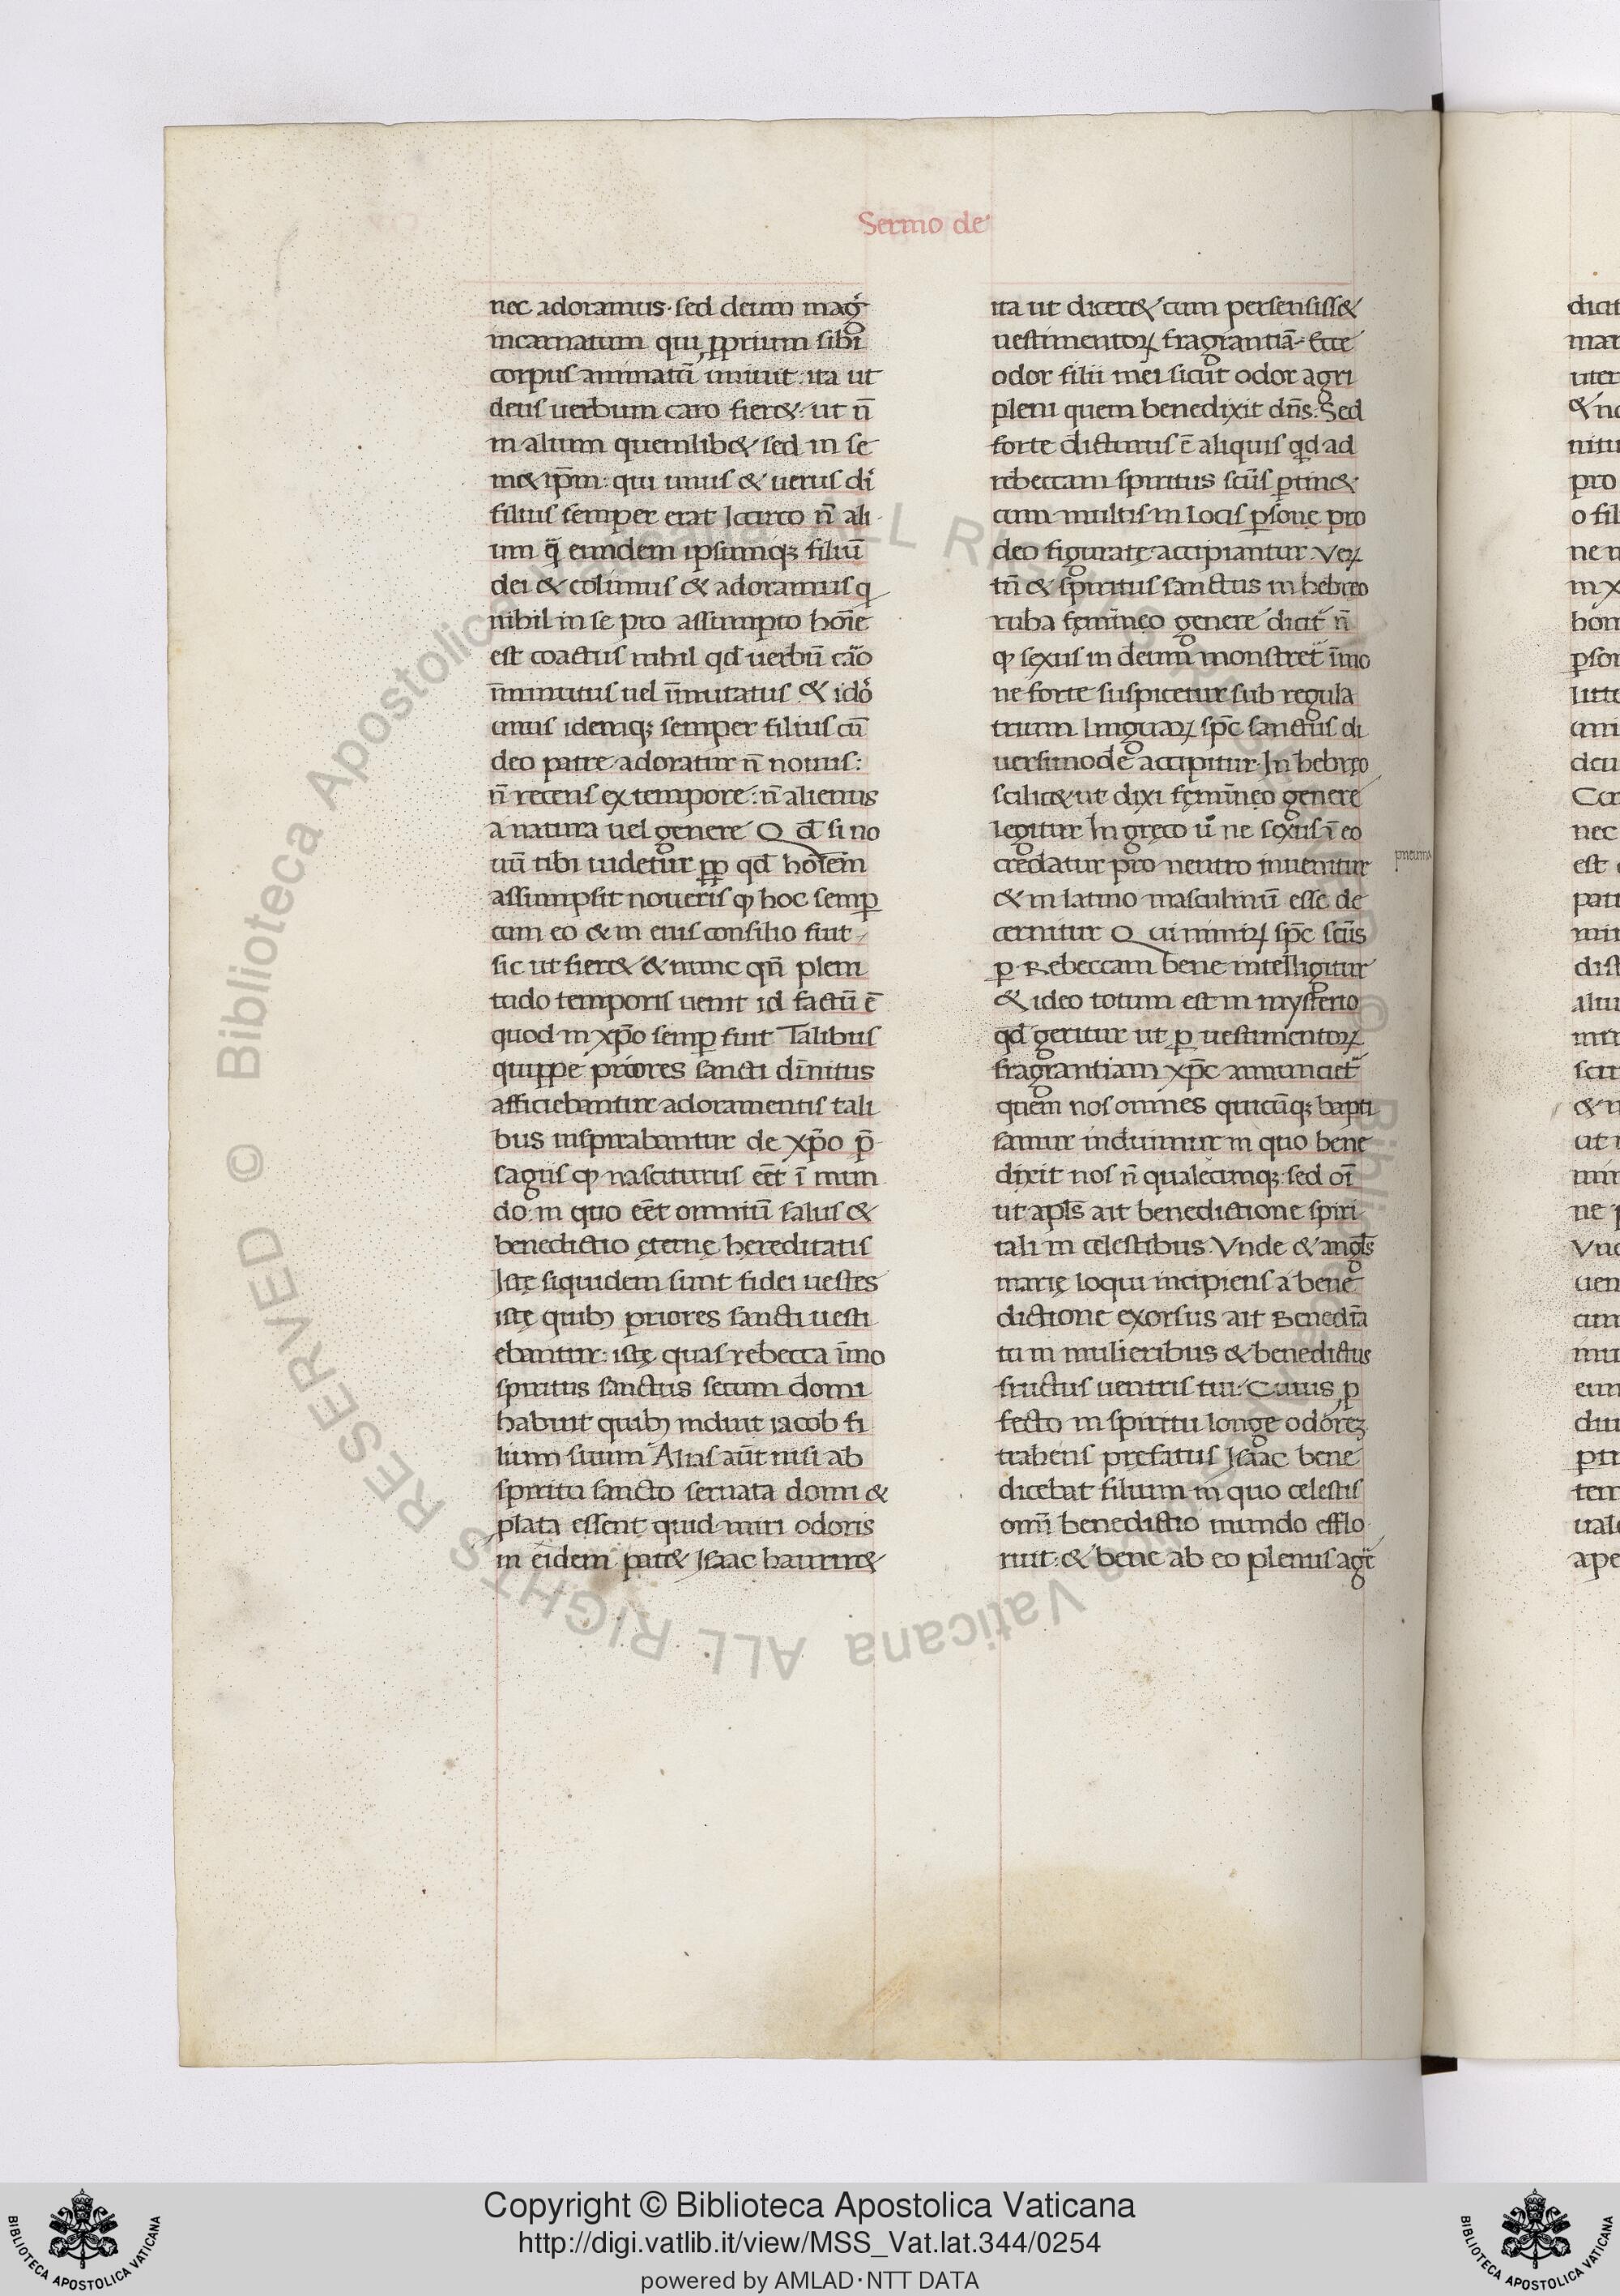 Sermo de
nec adoramus. sed deum mag̃
incarnatum qui ꝓprium sibi
corpus animatũ univit: ita ut
deus uerbum caro fier&: ut ñ
in alium quemlib& sed in se
m& ip̃m: qui unus & uerus di
filius semper erat Iccirco ñ ali
um q̃ eundem ipsumq; filiũ
dei & colimus & adoramus q
nihil in se pro assumpto hoĩe
est coactus nihil qd̃ uerbũ caro
ĩminutus uel ĩmutatus & idõ
unus idemq; semper filius cũ
deo patre adoratur ñ nouus:
ñ recens ex tempore: ñ alienus
a natura uel genere Qd̃ si no
uũ tibi uidetur ꝓp qd̃ hoĩem
assumpsit noueris ꝙ hoc semꝑ
cum eo & in eius consilio fuit
sic ut fier& & nunc qñ pleni
tudo temporis uenit id factũ ẽ
quod in xp̃o semꝑ fuit Talibus
quippe priores sancti diñitus
afficiebantur adoramentis tali
bus inspirabantur de xp̃o p̃
sagiis ꝙ nasciturus eẽt ĩ mun
do: in quo eẽt omniũ salus &
benedictio ęternę hereditatis
Istę siquidem sunt fidei uestes
istę quibꝫ priores sancti uesti
ebantur: istę quas rebecca ĩmo
spiritus sanctus secum domi
habuit quibꝫ induit iacob fi
lium suum Alias aũt nisi ab
spiritu sancto seruata domi &
plata essent quid miri odoris
in eidem pat& Isaac haurir&
ita ut dicer& cum persensiss&
uestimentoꝝ fragrantiã Ecce
odor filii mei sicut odor agri
pleni quem benedixit dñs: Sed
forte dicturus ẽ aliquis qd̃ ad
rebeccam spiritus scũs ꝑtin&
cum multis in locis ꝑsonę pro
deo figuratę accipiantur Veꝝ
tñ & spiritus sanctus in hebreo
ruha femineo genere dicit̃ ñ
ꝙ sexus in deum monstret̃ ĩmo
ne forte suspicetur sub regula
trium linguaꝝ sp̃c sanctus di
uersimode accipitur In hebręo
scilic& ut dixi femineo genere
legitur In gręco ũ ne sexus ĩ eo
credatur pro neutro inuenitur
pneuma
& in latino masculinũ esse de
cernitur Qui nimiꝝ sp̃c scũs
ꝑ Rebeccam bene intelligitur
& ideo totum est in mysterio
qd̃ geritur ut ꝑ uestimentoꝝ
fragrantiam xp̃c annunciet̃
quem nos omnes quicũq; bapti
samur induimur in quo bene
dixit nos ñ qualecumq; sed oĩ
ut apl̃s ait benedictione spiri
tali in celestibus. Vnde & angl̃s
marię loqui incipiens a bene
dictione exorsus ait Benedic̃ta
tu in mulieribus & benedictus
fructus uentris tui: Cuius ꝓ
fecto in spiritu longe odorez
trahens prefatus Isaac bene
dicebat filium in quo celestis
omĩ benedictio mundo efflo
ruit: & bene ab eo plenus agr̃